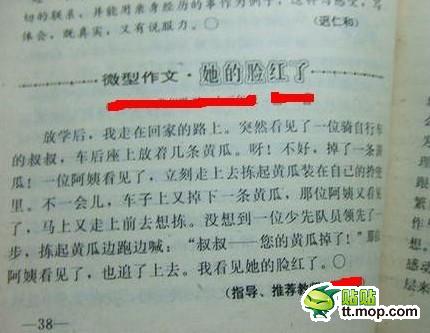 切的联系，并能用来身经历的事作为例子，这样写感受、写
体会，既真实，又有说服力。
（迟仁和）
微型作文·她的脸红了
放学后，我走在回家的路上。突然看见了一位骑自行车
的叔叔，车后座上放着几条黄瓜。呀！不好，掉了一条黄
瓜！一位阿姨看见了，立刻走上去拣起黄瓜装在自己的挎兜
里。不一会儿，车子上又掉下一条黄瓜，那位阿姨又看见
了，马上又走上前去想拣。没想到一位少先队员领先了一
步，拣起黄瓜边跑边喊：“叔叔——您的黄瓜掉了！”那位
阿姨看见了，也追了上去。我看见她的脸红了。〇
（指导、推荐教
—38—
感动
层来
贴贴
tt.mop.com